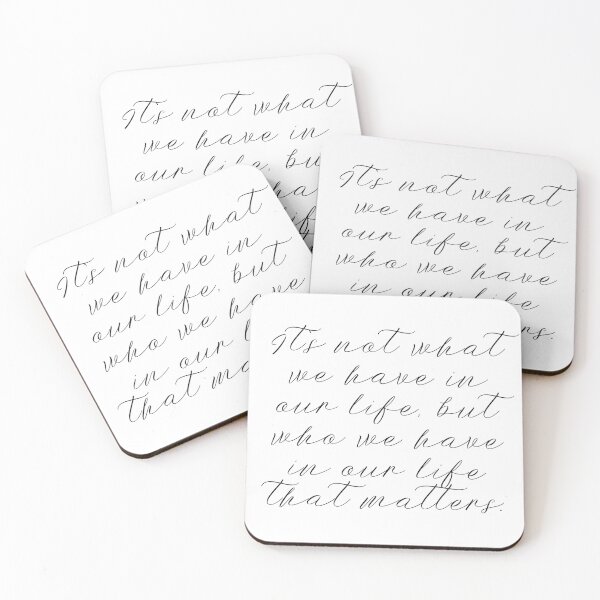 It's not what
we have in
our life, bu
It's not what
we have in
our life, but
who we have
in our life
It's not what
we have in
our life, but
who we have
in our l
that ma
It's not what
we have in
our life, but
who we have
in our life
that matters.